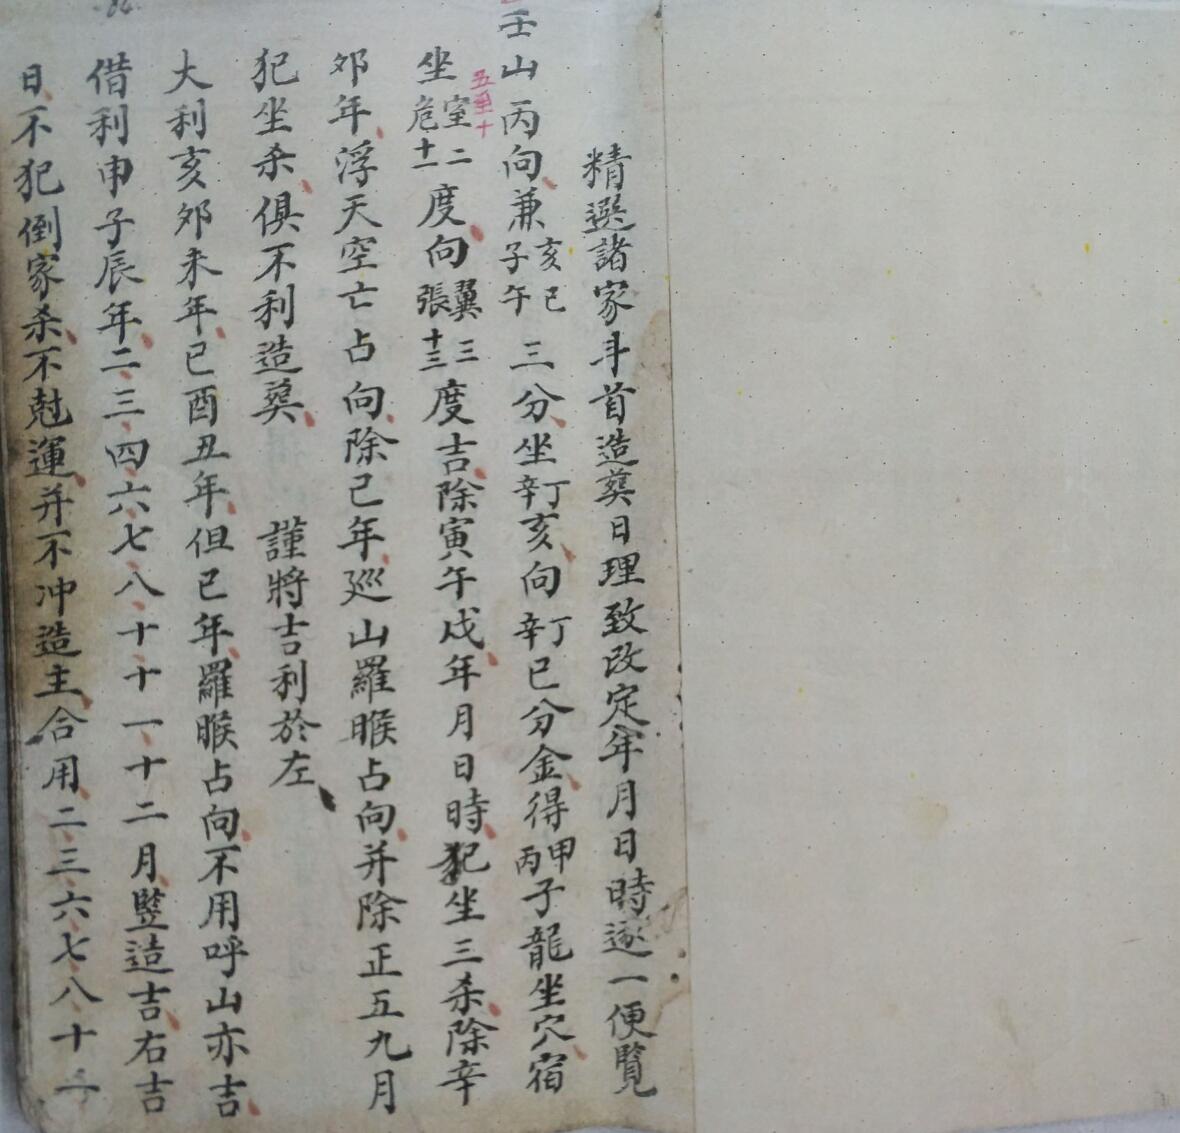 精選諸家斗首造葬日理致改定年月日時逐一便覧
壬山丙向兼亥巳子午三分坐丁辛亥向丁辛巳分金得甲丙子龍坐穴宿
坐室二危十一度向翼三張十三度吉除寅午戌年月日時犯坐三杀除辛
五至十
夘年浮天空亡占向除己年巡山羅睺占向并除正五九月
犯坐杀俱不利造葬 謹將吉利於左
大利亥夘未年巳酉丑年但巳年羅睺占向不用呼山亦吉
借利申子辰年二三四六七八十十一十二月竪造吉右吉
日不犯倒家杀不尅運并不冲造主合用二三六七八十